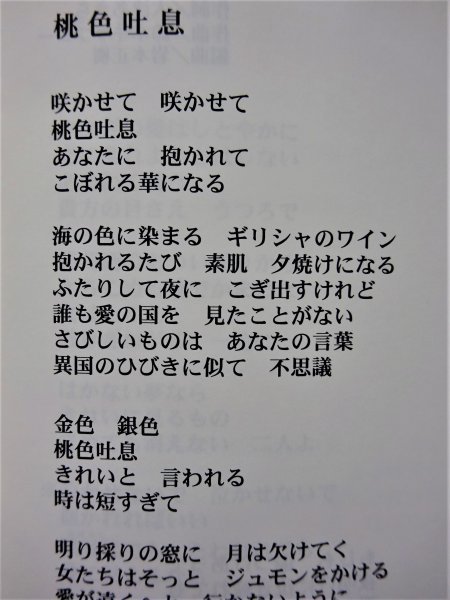 桃色吐息
咲かせて 咲かせて
桃色吐息
あなたに 抱かれて
こぼれる華になる
海の色に染まる ギリシャのワイン
抱かれるたび 素肌 夕焼けになる
ふたりして夜に こぎ出すけれど
誰も愛の国を 見たことがない
さびしいものは あなたの言葉
異国のひびきに似て 不思議
金色 銀色
桃色吐息
きれいと 言われる
時は短すぎて
明り採りの窓に 月は欠けてく
女たちはそっと ジュモンをかける
愛が遠くへと 行かないように